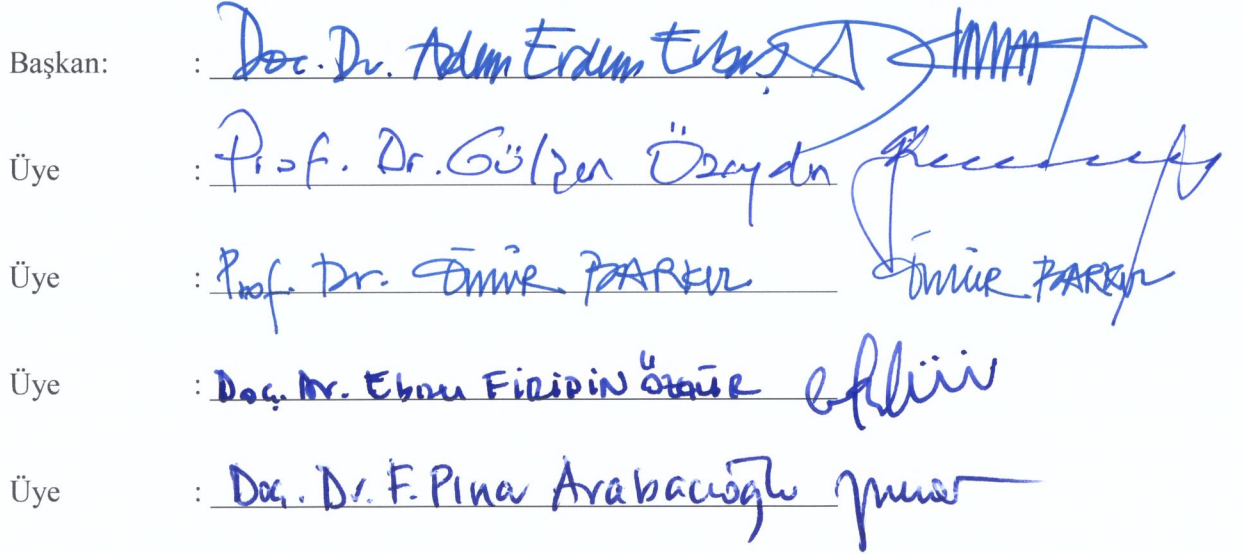 Başkan: : Doc. Dr. Adem Erdem Erbaş
Üye : Prof. Dr. Gülşen Özaydın
Üye : Prof. Dr. ÖMÜR BARKUL ÖMÜR BARKUL
Üye : Doç. Dr. Ebru FİRİDİN ÖZGÜR
Üye : Doç. Dr. F. Pınar Arabacıoğlu